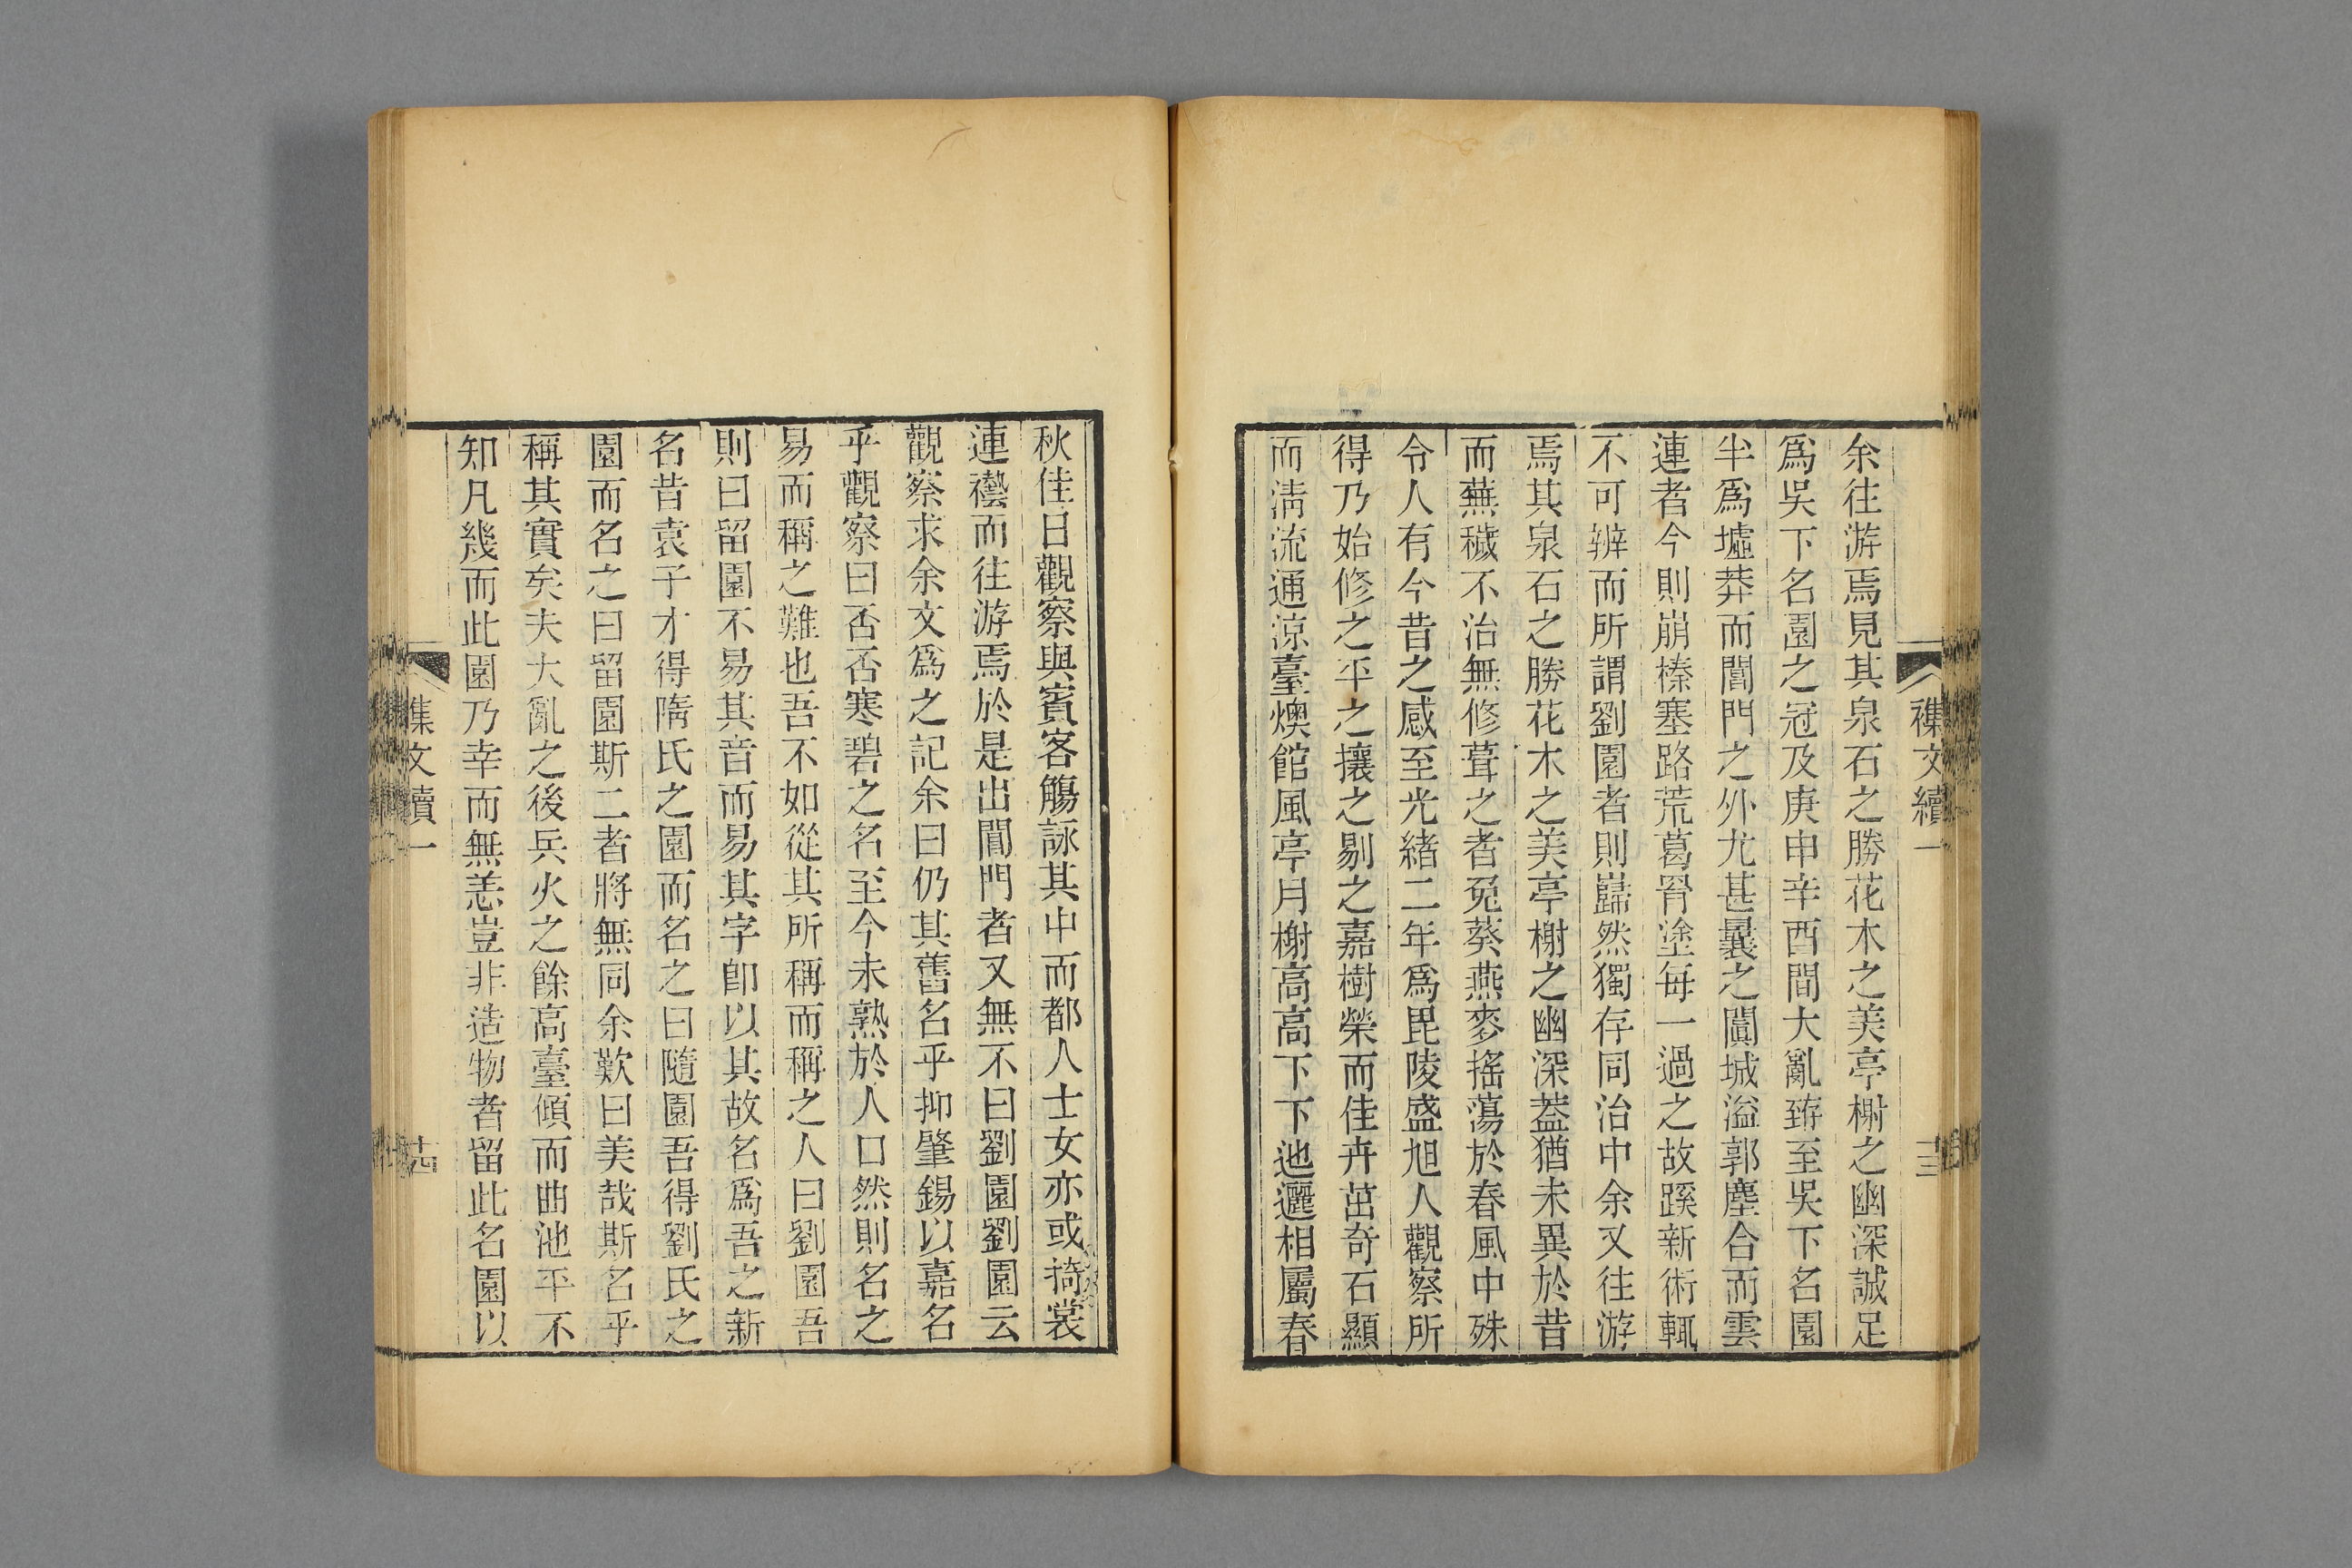 襍文續一
十三
余往游焉見其泉石之勝花木之美亭榭之幽深誠足
爲吳下名園之冠及庚申辛酉間大亂臻至吳下名園
半爲墟莽而閶門之外尤甚曩之闐城溢郭塵合而雲
連者今則崩榛塞路荒葛罥塗每一過之故蹊新術輒
不可辨而所謂劉園者則巋然獨存同治中余又往游
焉其泉石之勝花木之美亭榭之幽深蓋猶未異於昔
而蕪穢不治無修葺之者兔葵燕麥搖蕩於春風中殊
令人有今昔之感至光緒二年爲毘陵盛旭人觀察所
得乃始修之平之攘之剔之嘉樹榮而佳卉茁奇石顯
而淸流通涼臺燠館風亭月榭高高下下迤邐相屬春
秋佳日觀察與賓客觴詠其中而都人士女亦或掎裳
連襼而往游焉於是出閶門者又無不曰劉園劉園云
觀察求余文爲之記余曰仍其舊名乎抑肇錫以嘉名
乎觀察曰否否寒碧之名至今未熟於人口然則名之
易而稱之難也吾不如從其所稱而稱之人曰劉園吾
則曰留園不易其音而易其字卽以其故名爲吾之新
名昔袁子才得隋氏之園而名之曰隨園吾得劉氏之
園而名之曰留園斯二者將無同余歎曰美哉斯名乎
稱其實矣夫大亂之後兵火之餘高臺傾而曲池平不
知凡幾而此園乃幸而無恙豈非造物者留此名園以
集文續一
十四